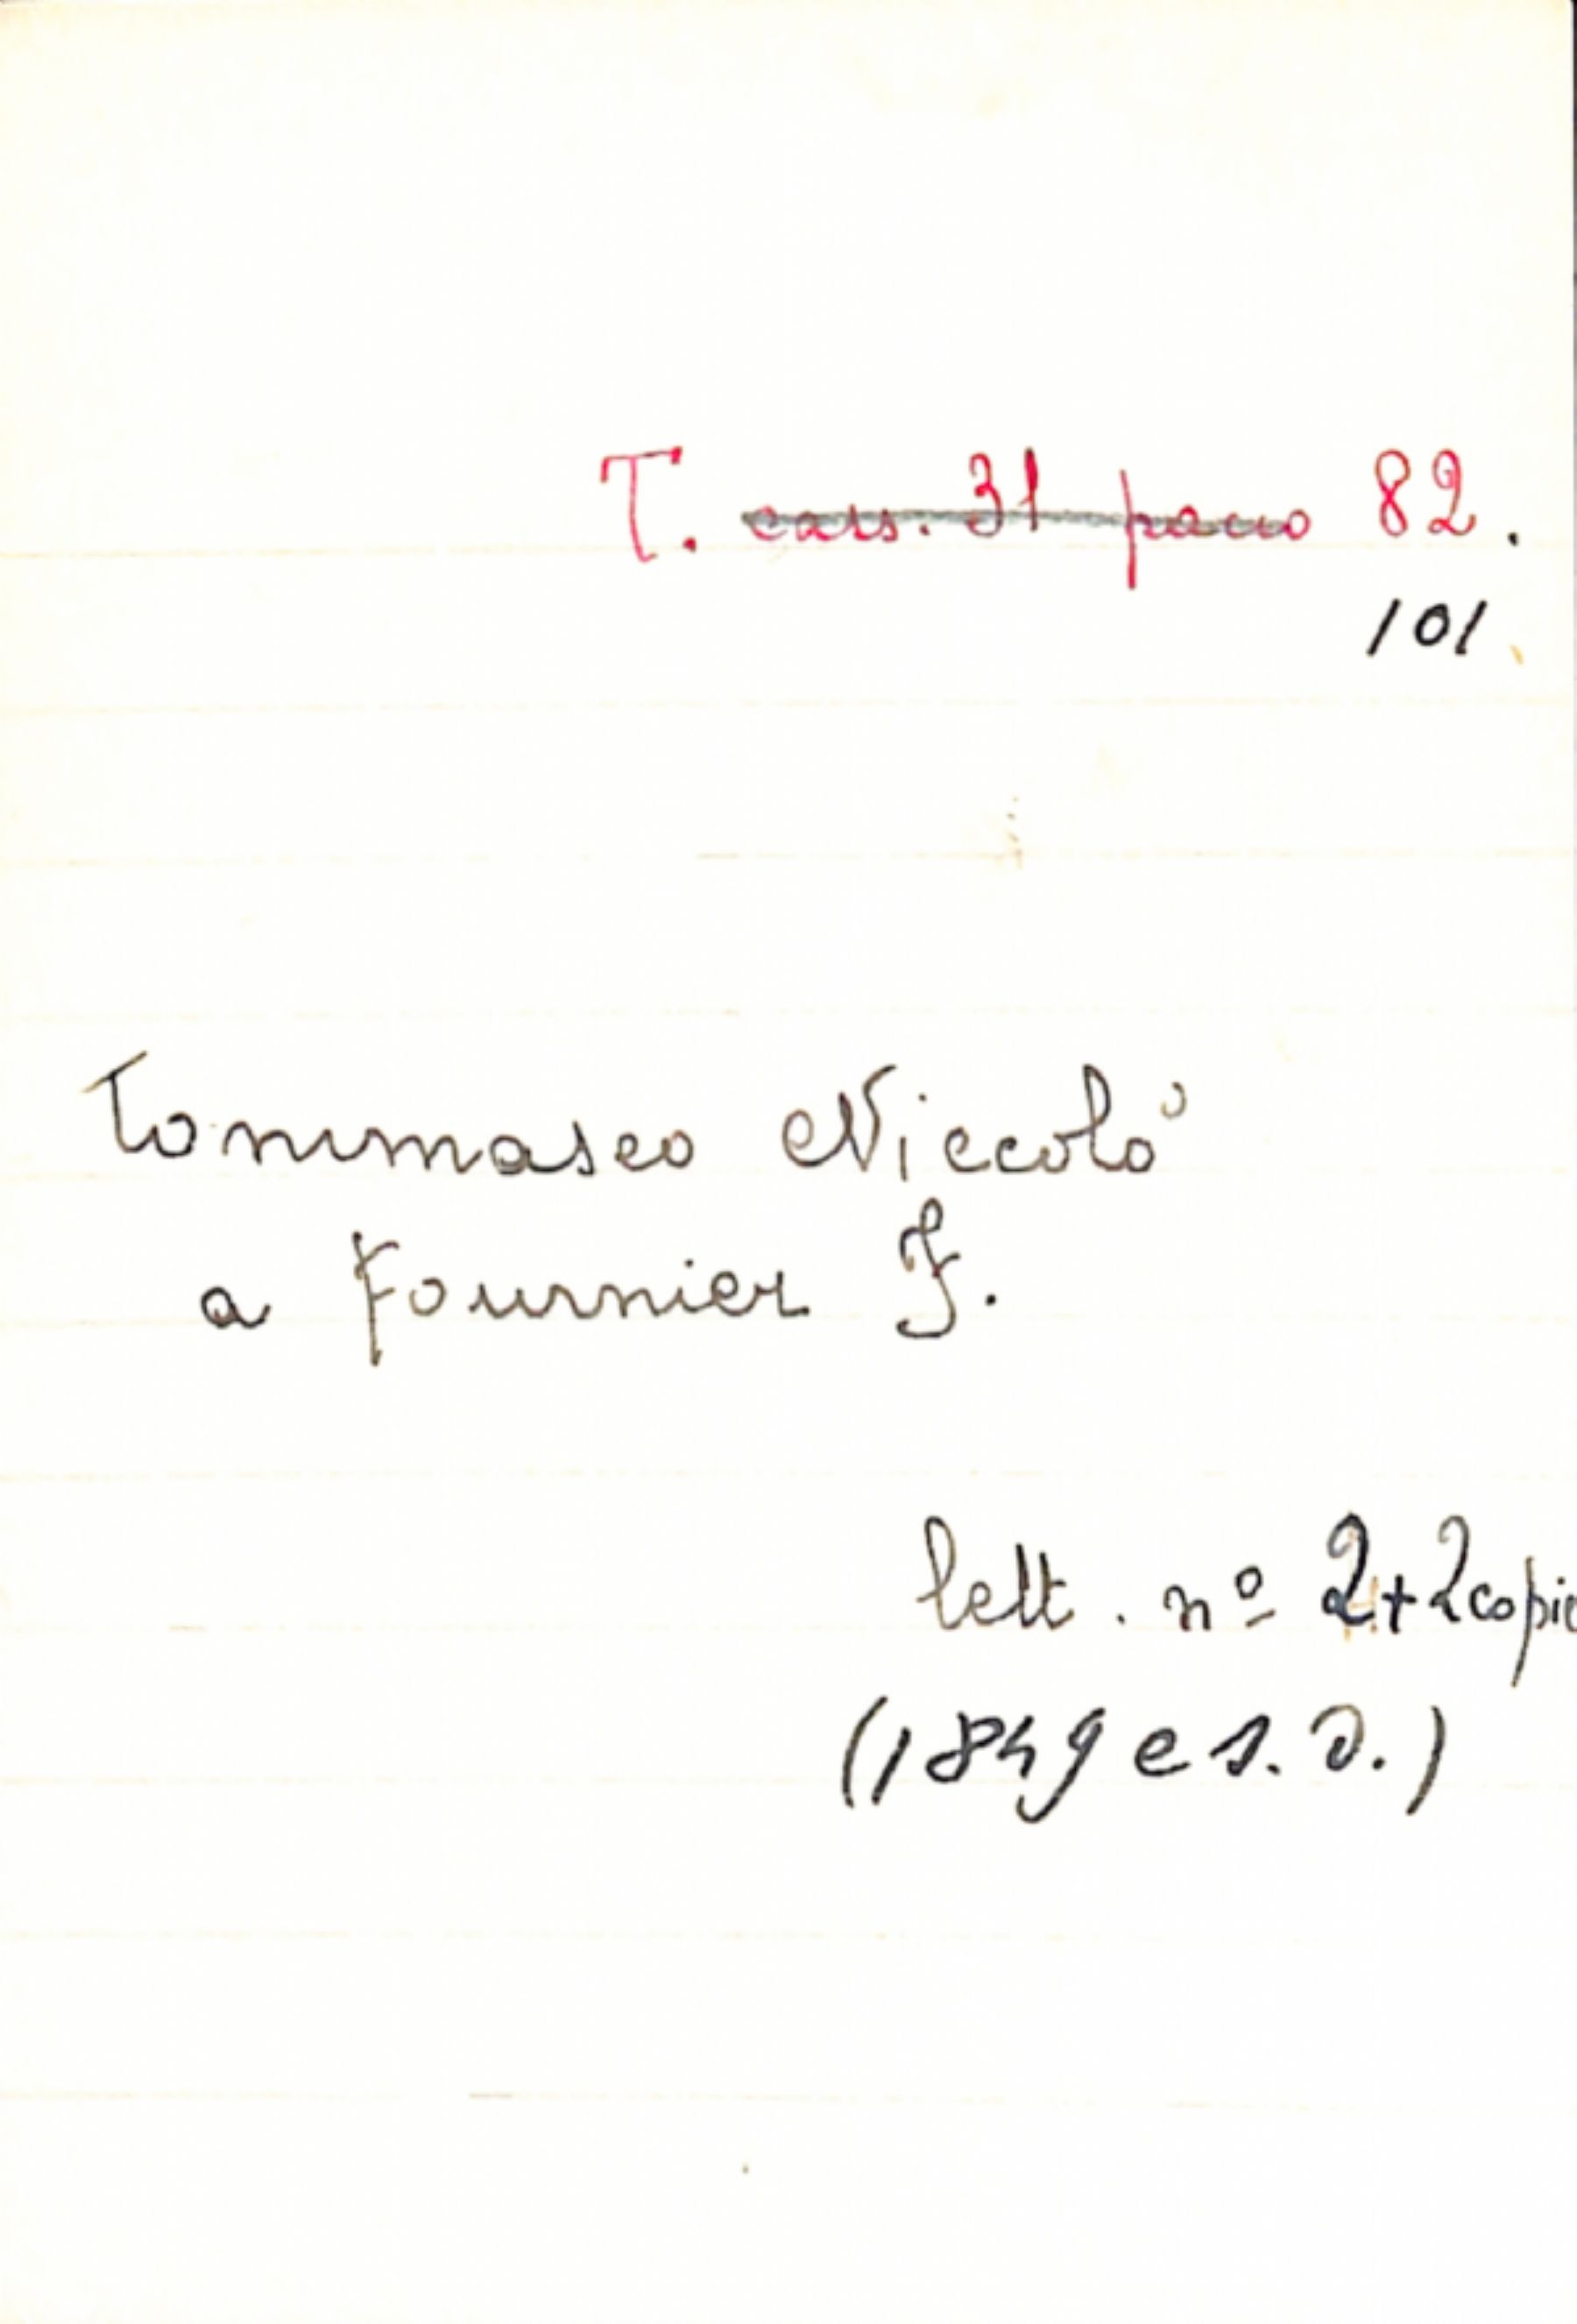 T. cass. 31 pacco 82.
101
Tommaseo Niccolò
a Fournier F.
lett. nº 2+2copie
(1849 e s. d.)